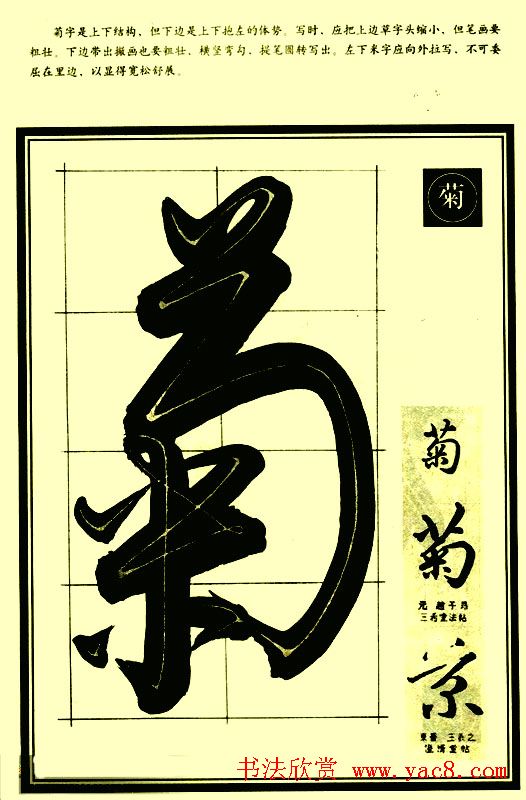 菊字是上下结构,但下边是上下抱左的体势。写时,应把上边草字头缩小,但笔画要
粗壮。下边带出撇画也要粗壮,横竖弯勾,提笔圆转写出。左下米字应向外拉写,不可委
屈在里边,以显得宽松舒展。
菊
菊
菊
菊
元 趙子昂
三希堂法帖
东晋 王羲之
澄清堂帖
书法欣赏 www.yac8.com